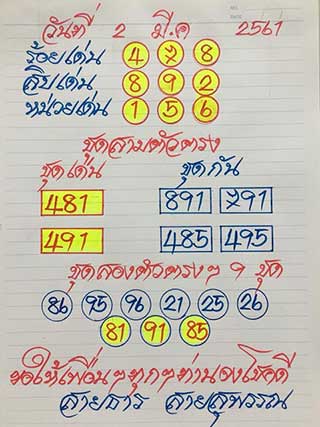 วันที่ 2 มี.ค 2561
ร้อยเด่น 4 7 8
สิบเด่น 8 9 2
หน่วยเด่น 1 5 6
ชุดสามตัวตรง
ชุดเด่น ชุดกัน
481 891 791
491 485 495
ชุดสองตัวตรงๆ 9 ชุด
86 95 96 21 25 26
81 91 85
ขอให้เพื่อนๆทุกๆท่านจงโชคดี
สายธาร สายสุพรรณ